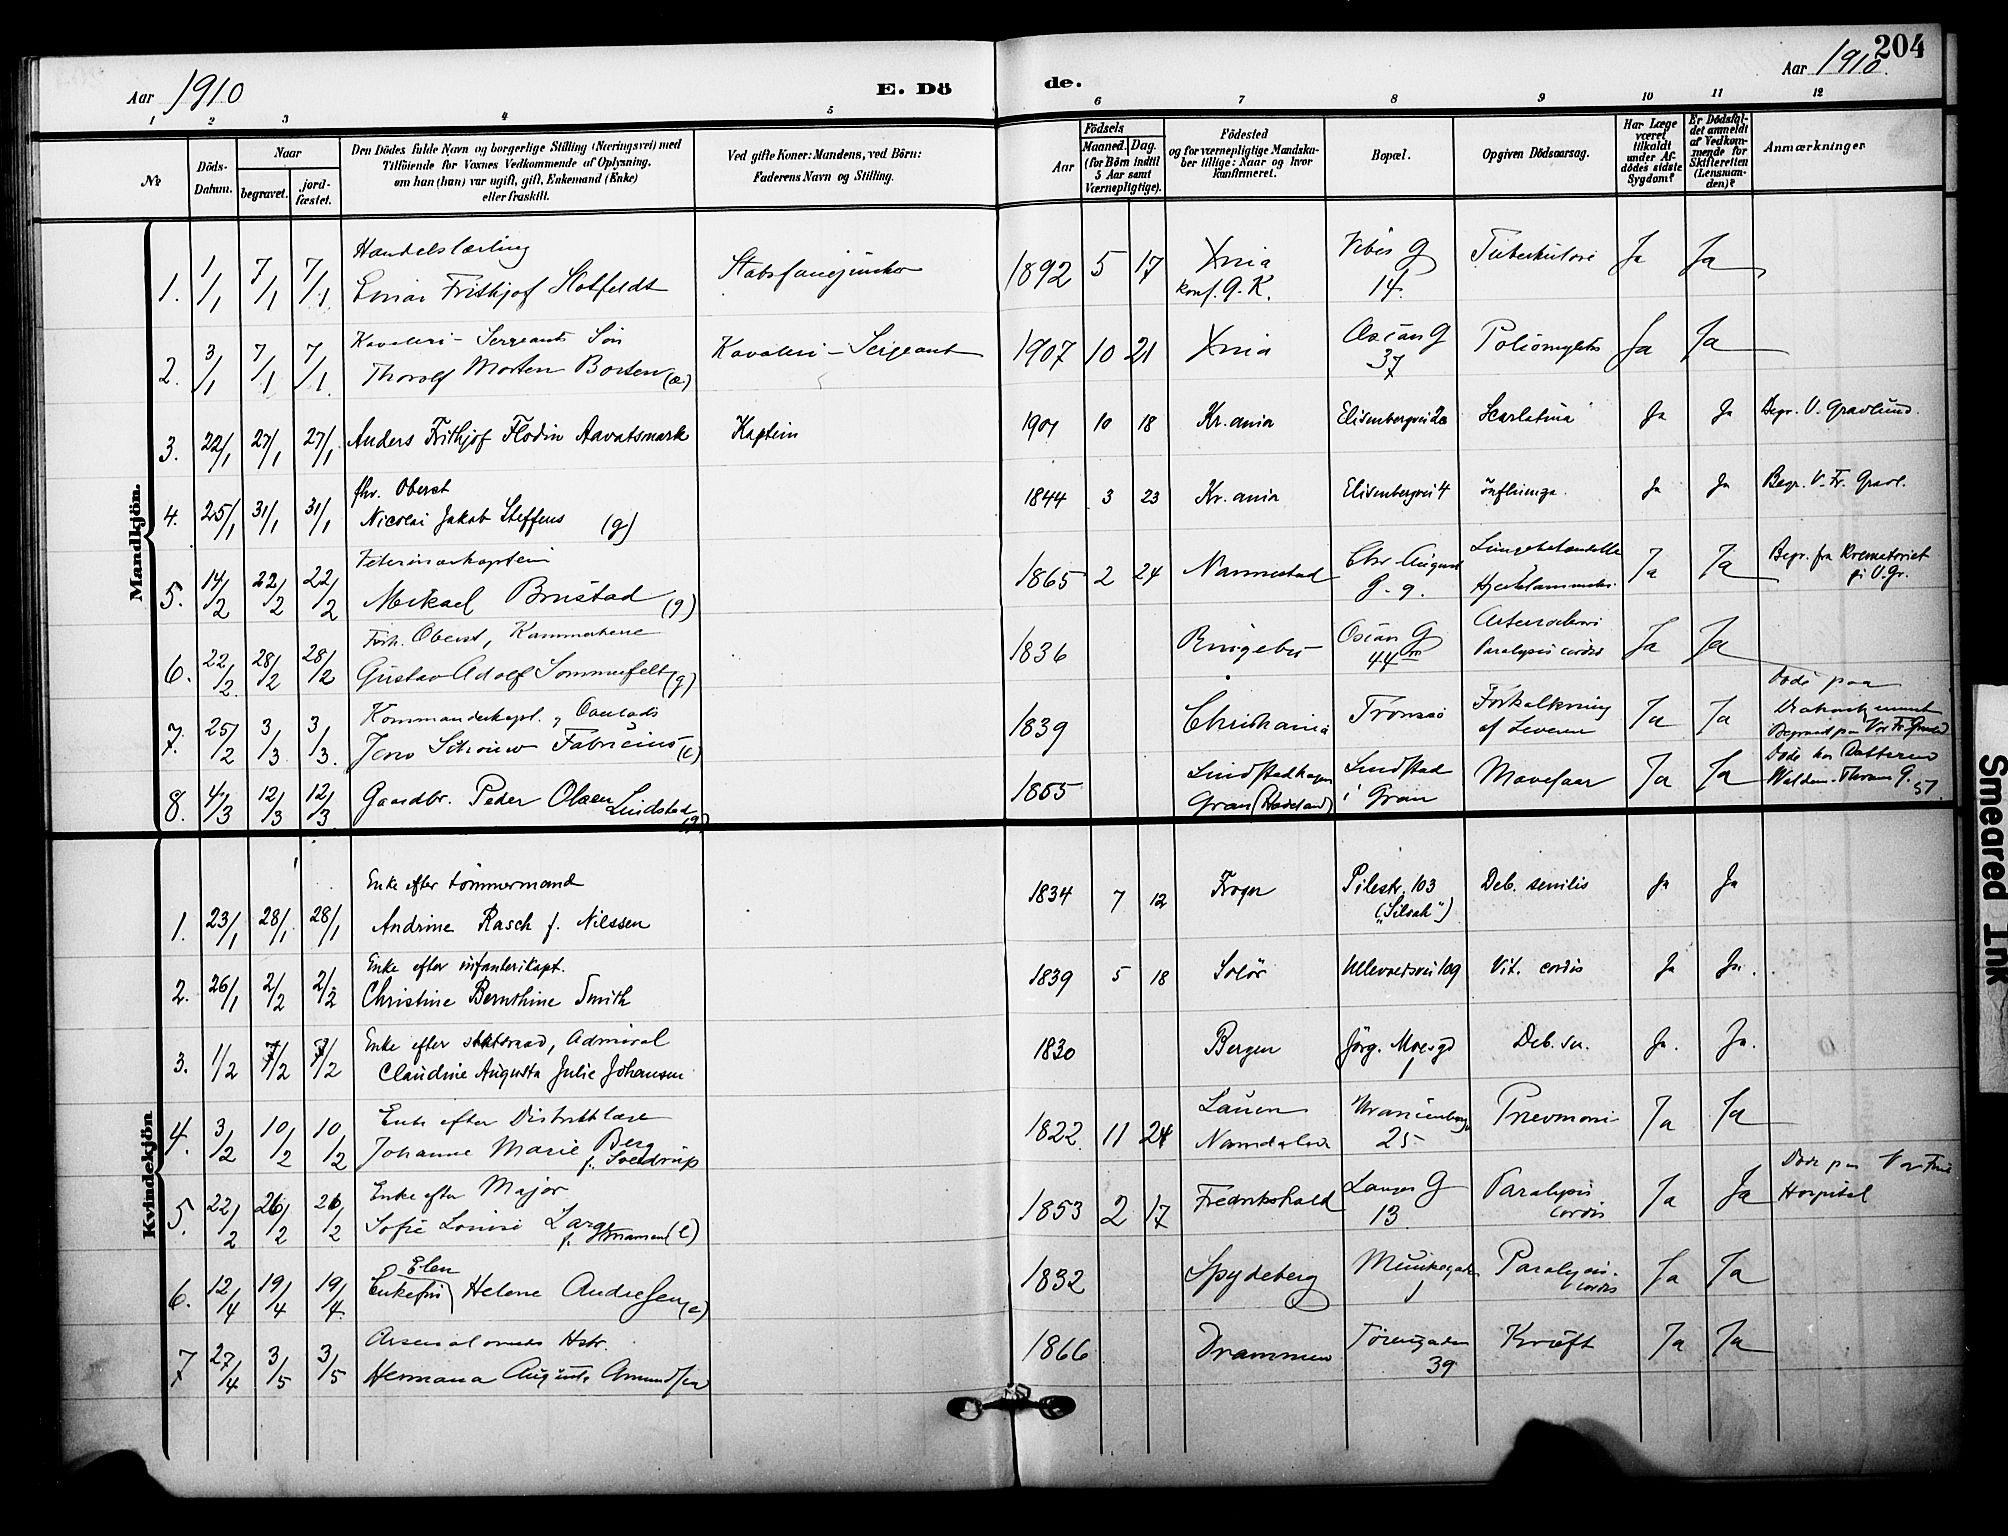 204
Aar 1910
E. Dö
de.
Aar 1910.
1 2 3 4 5 6 7 8 9 10 11 12
№
Döds-Datum.
Naar
begravet.
jord-fæstet.
Den Dödes fulde Navn og borgerlige Stilling (Næringsvei) med
Tilföiende for Voxnes Vedkommende af Oplysning,
om han (hun) var ugift, gift, Enkemand (Enke)
eller fraskilt.
Ved gifte Koner: Mandens, ved Börn:
Faderens Navn og Stilling.
Födsels
Aar
Maaned. Dag.
(for Börn indtil
5 Aar samt
Værnepligtige).
Födested
og for værnepligtige Mandska-
ber tillige: Naar og hvor
konfirmeret.
Bopæl.
Opgiven Dödsaarsag.
Har Læge
været
tilkaldt
under Af-
dødes sidste
Sygdom?
Er Dödsfal-
det anmeldt
af Vedkom-
mende for
Skifteretten
(Lensman-
den)?
Anmærkninger
Mandkjön.
Handelslærling
1. 1/1 7/1 7/1 Einar Frithjof Stabsfanejunker 1892 5 17 Xnia konf. G. K. Vibes G 14. Tuberkulose Ja Ja
Kavaleri-Sergeants Søn
2. 3/1 7/1 7/1 Thorolf Morten Borsen (æ) Kavaleri-Sergeant 1907 10 21 Xnia Oscars G 37 Ja Ja
3. 22/1 27/1 27/1 Anders Frithjof Flodin Aavatsmark Kaptein 1901 10 18 Kr.ania Scarlatina Ja Ja Begr. V. Gravlund.
fhv. Oberst
4. 25/1 31/1 31/1 Nicolai Jakob Steffens (g) 1844 3 23 Kr.ania Elisenbergvei 4 Influenza. Ja Ja Begr. V. Fr. Gravl.
Veterinærkaptein
5. 14/2 22/2 22/2 Mikael Brustad (g) 1865 2 24 Nannestad Chr August G. 9. Lungebetændelse Hjertelammelse Ja Ja Begr. fra Krematoriet på V. Gr.
Forh. Oberst, Kammerherre
6. 22/2. 28/2 28/2 Gustav Adolf Sommerfelt (g) 1836 Ringebu Oscars G 44 Paralysis cordis Ja Ja
7. 25/2 3/3 3/3. Jens Schouw Fabricius (e) 1839 Christiania Tromsø Forkalkning af Leveren Ja Ja Døde paa Begravet paa Vor Fr. Gravlund
8. 4/3 12/3 12/3. Gaardbr. Peder Olsen Lindstad (g) 1855 Gran (Hadeland) Lindstad i Gran Mavesaar Ja Ja Døde hos Datteren Waldem. Thranes G. 51.
Kvindekjön
Enke efter tømmermand
1. 23/1 28/1 28/1 Andrine Rasch f. Nilssen 1834 7 12 Frogn Pilestr. 103 Deb. senilis Ja Ja
Enke efter infanterikapt.
2. 26/1 2/2 2/2 Christine Bernthine Smith 1839 5 18 Solör Ullevoldsvei 109 Vit. cordis Ja Ja.
Enke efter statsraad, Admiral
3. 1/2 7/2 7/2 Claudine Augusta Julie Johansen 1830 Bergen Jörg. Moesgd Deb. sen. Ja. Ja.
Enke efter Distriktslæge
4. 3/2 10/2 10/2 Johanne Marie Berg f. Sverdrup 1822 11 24 Namdalen Uranienborg 25 Pneumoni Ja Ja
Enke efter Major
5. 22/2 26/2 26/2 Sofie Lovise Lange (e) 1853 2 17 Fredrikshald Langes G 13. Paralysis cordis Ja Ja Døde paa Vor Frue Hospital
Elen
6. 12/4 19/4 19/4. Enkefru Helene Andresen (e) 1832 Spydeberg Munkegaten 1 Paralysis cordis Ja Ja
7 27/4 3/5 3/5 Hermana Augusta Amundsen 1866 Drammen 39 Kræft Ja Ja
Smeared Ink